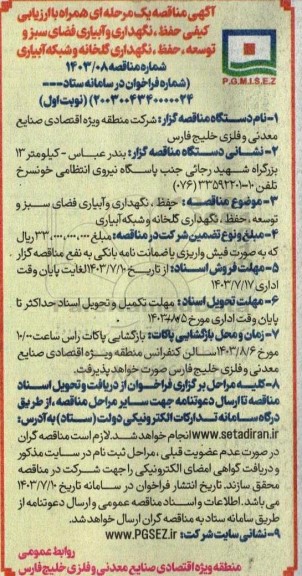 آگهی مناقصه یک مرحله ای همراه با ارزیابی
کیفی حفظ ، نگهداری و آبیاری فضای سبز و
توسعه ، حفظ ، نگهداری گلخانه و شبکه آبیاری
شماره مناقصه ۱۴۰۳/۰۸
(شماره فراخوان در سامانه ستاد---
۲۰۰۳۰۰۴۳۴۰۰۰۰۰۲۴) (نوبت اول)
P.G.M.I.S.E.Z
۱-نام دستگاه مناقصه گزار: شرکت منطقه ویژه اقتصادی صنایع
معدنی و فلزی خلیج فارس
۲- نشانی دستگاه مناقصه گزار: بندر عباس - کیلومتر ۱۳
بزرگراه شهید رجائی جنب پاسگاه نیروی انتظامی خونسرخ
تلفن ۱۰-۳۳۵۹۲۲۰۱ (۰۷۶)
۳- موضوع مناقصه: حفظ ، نگهداری و آبیاری فضای سبز و
توسعه ، حفظ ، نگهداری گلخانه و شبکه آبیاری
۴-مبلغ و نوع تضمین شرکت در مناقصه: مبلغ ۳۳،۰۰۰،۰۰۰،۰۰۰ ریال
که به صورت فیش واریزی یا ضمانت نامه بانکی به نفع مناقصه گزار
۵-مهلت فروش اسناد: از تاریخ ۱۴۰۳/۷/۱۰ لغایت پایان وقت
اداری ۱۴۰۳/۷/۱۷
۶-مهلت تحویل اسناد : مهلت تکمیل و تحویل اسناد حداکثر تا
پایان وقت اداری مورخ ۱۴۰۳/۸/۵
۷- زمان و محل بازگشایی پاکات: بازگشایی پاکات راس ساعت ۱۰/۰۰
مورخ ۱۴۰۳/۸/۶ سالن کنفرانس منطقه ویژه اقتصادی صنایع
معدنی و فلزی خلیج فارس صورت خواهد پذیرفت.
۸-کلیه مراحل برگزاری فراخوان از دریافت و تحویل اسناد
مناقصه تا ارسال دعوتنامه جهت سایر مراحل مناقصه ،از طریق
درگاه سامانه تدارکات الکترونیکی دولت (ستاد) به آدرس:
www.setadiran.ir انجام خواهد شد. لازم است مناقصه گران
در صورت عدم عضویت قبلی ، مراحل ثبت نام در سایت مذکور
و دریافت گواهی امضای الکترونیکی را جهت شرکت در مناقصه
محقق سازند. تاریخ انتشار فراخوان در سامانه تاریخ ۱۴۰۳/۷/۱۰
می باشد. اطلاعات و اسناد مناقصه عمومی و ارسال دعوتنامه از
طریق سامانه ستاد به مناقصه گران ارسال خواهد شد.
۹-نشانی سایت شرکت: www.PGSEZ.ir
روابط عمومی
منطقه ویژه اقتصادی صنایع معدنی و فلزی خلیج فارس